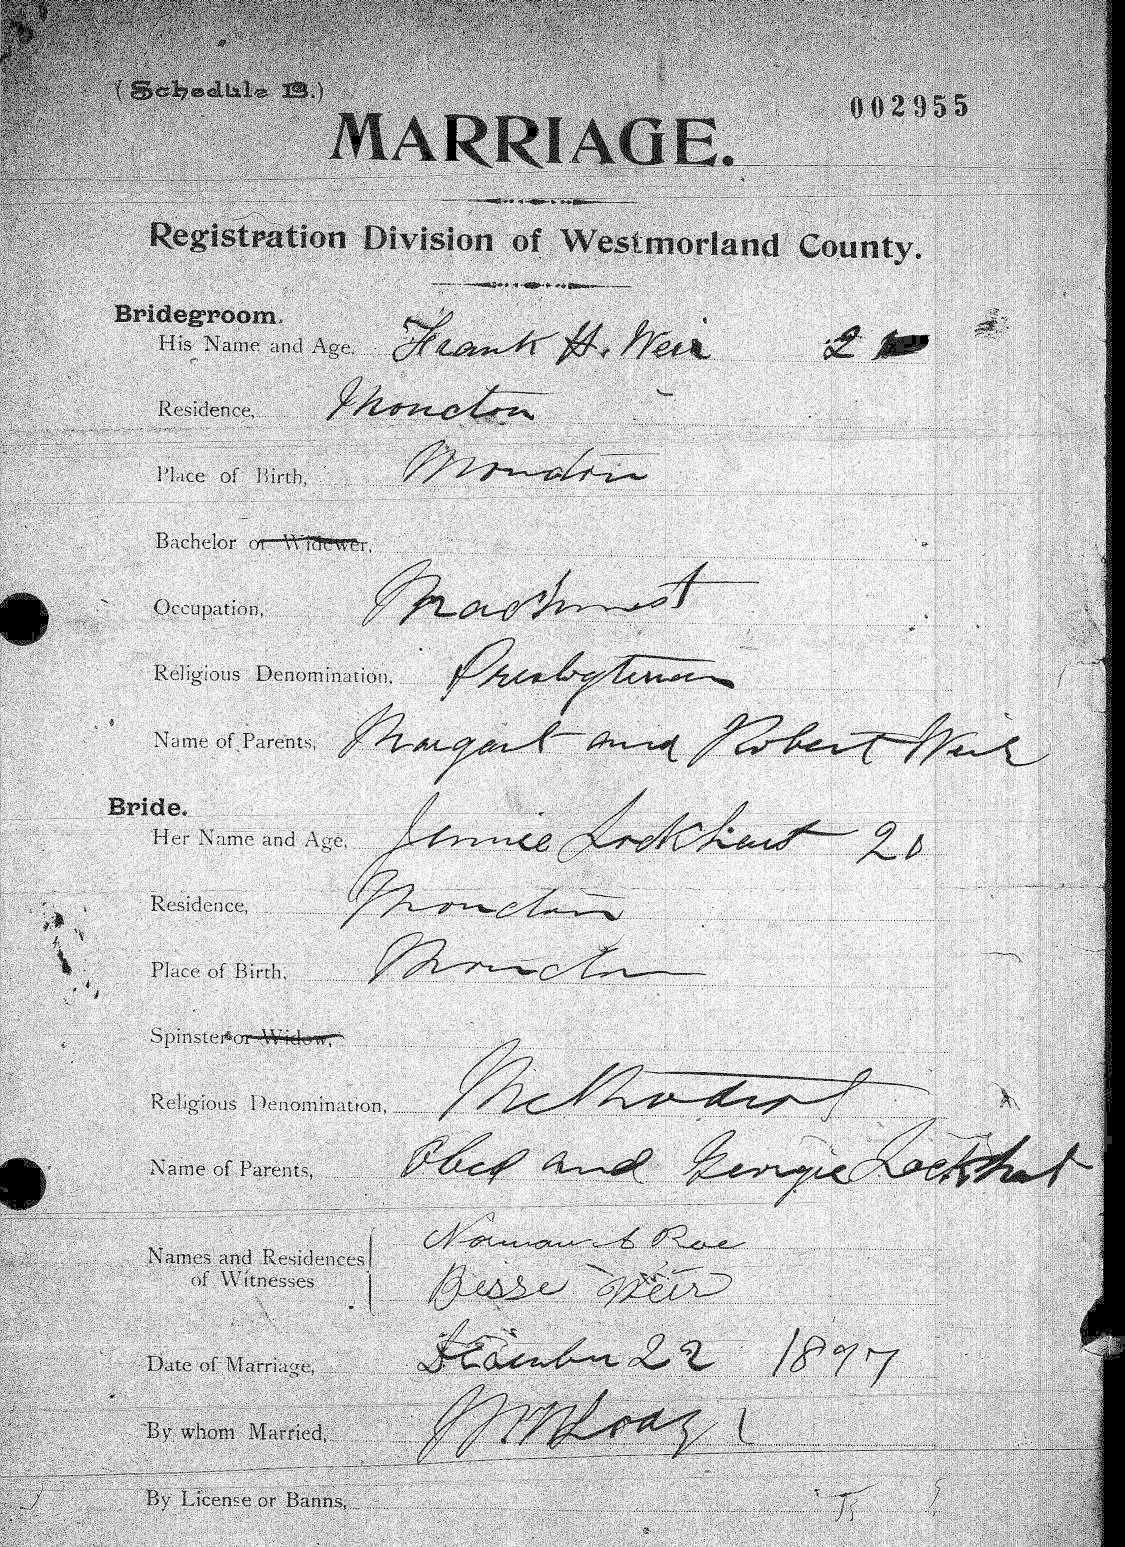 (Schedule B.)
002955
MARRIAGE.
Registration Division of Westmorland County.
Bridegroom.
His Name and Age, Frank H. Weir 2
Residence, Moncton
Place of Birth, Moncton
Bachelor or Widower,
Occupation, Machinest
Religious Denomination, Presbyterian
Name of Parents, Margaret and Robert Weir
Bride.
Her Name and Age, Jennie Lockhart 20
Residence, Moncton
Place of Birth, Moncton
Spinster or Widow,
Religious Denomination, Methodist
Name of Parents, Obed and Georgie Lockhart
Names and Residences
of Witnesses
Norman Roe
Besse Weir
Date of Marriage, December 22 1897
By whom Married,
By License or Banns,